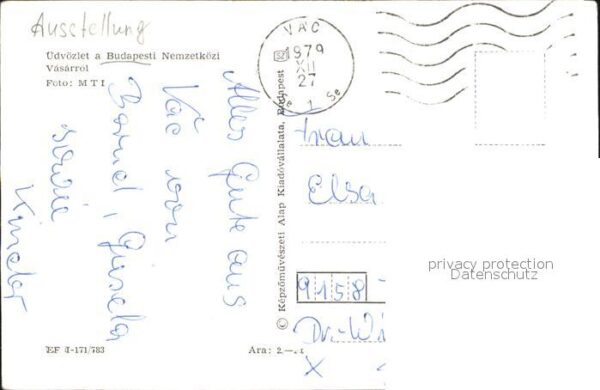 Ausstellung
Üdvözlet a Budapesti Nemzetközi
Vásárról
Foto: MTI
VÁC
979
XII
27
1
Alles Gute aus
Vác von
Bernd, Gisela
sowie
Kinder
© Képzőművészeti Alap Kiadóvállalata, Budapest
Frau
Elsa
9158
Dr.-Wi
X
EF II-171/783
Ára: 2,—
privacy protection
Datenschutz